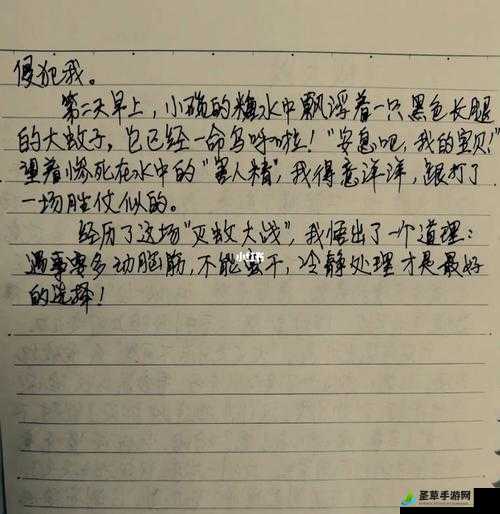 侵犯我。
第二天早上，小碗的糖水中飘浮着一只黑色长腿
的大蚊子，它已经一命乌呼啦！“安息吧，我的宝贝！”
望着惨死在水中的“害人精”，我得意洋洋，跟打了
一场胜仗似的。
经历了这场“灭蚊大战”，我悟出了一个道理：
遇事要多动脑筋，不能蛮干，冷静处理才是最好
的选择！
小红书
圣草手游网